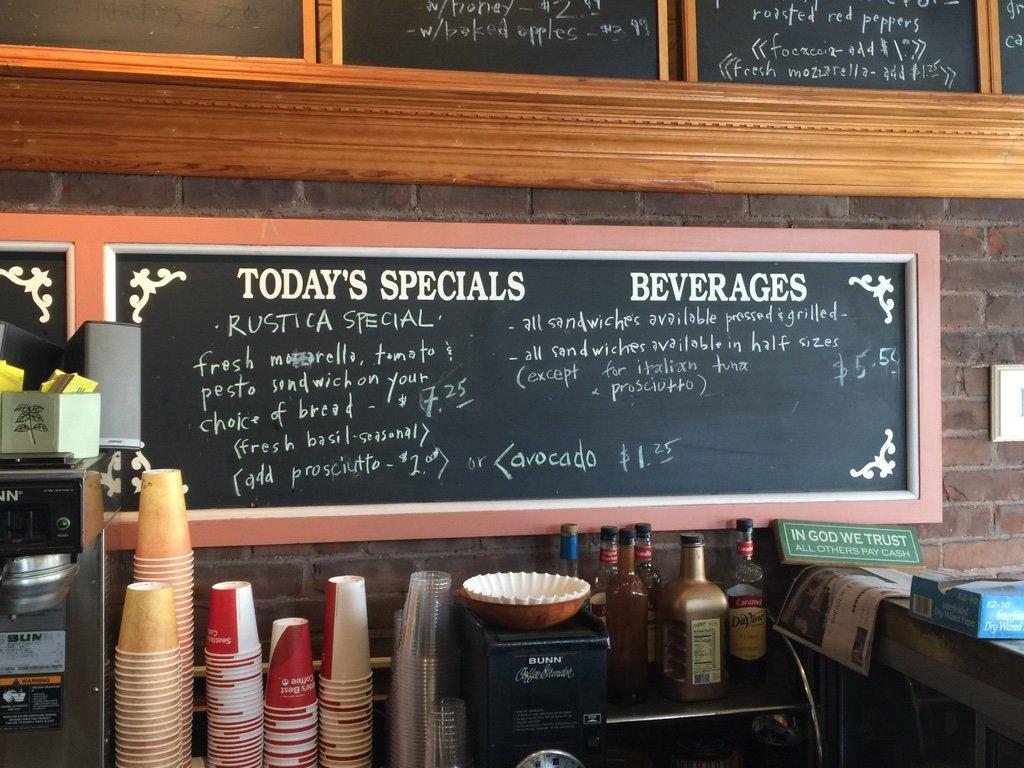 w/honey - $2.99
- w/baked apples - $2.99
roasted red peppers
<<focaccia - add $1.00>>
<<fresh mozzarella - add $1.25>>
TODAY'S SPECIALS
· RUSTICA SPECIAL ·
fresh mozzarella, tomato &
pesto sandwich on your
choice of bread - $7.25
<fresh basil - seasonal>
<add prosciutto - $2.00> or <avocado $1.25
BEVERAGES
- all sandwiches available pressed & grilled -
- all sandwiches available in half sizes
(except for italian tuna
& prosciutto)
$5.50
IN GOD WE TRUST
ALL OTHERS PAY CASH
NN
BUNN
WARNING
Seattle's
Best
Coffee
BUNN
Coffee Grinder
Caramel
DaVinci
EZ-10
Interfolded
Dry Waxed Paper
EZ-10
Dry Waxed